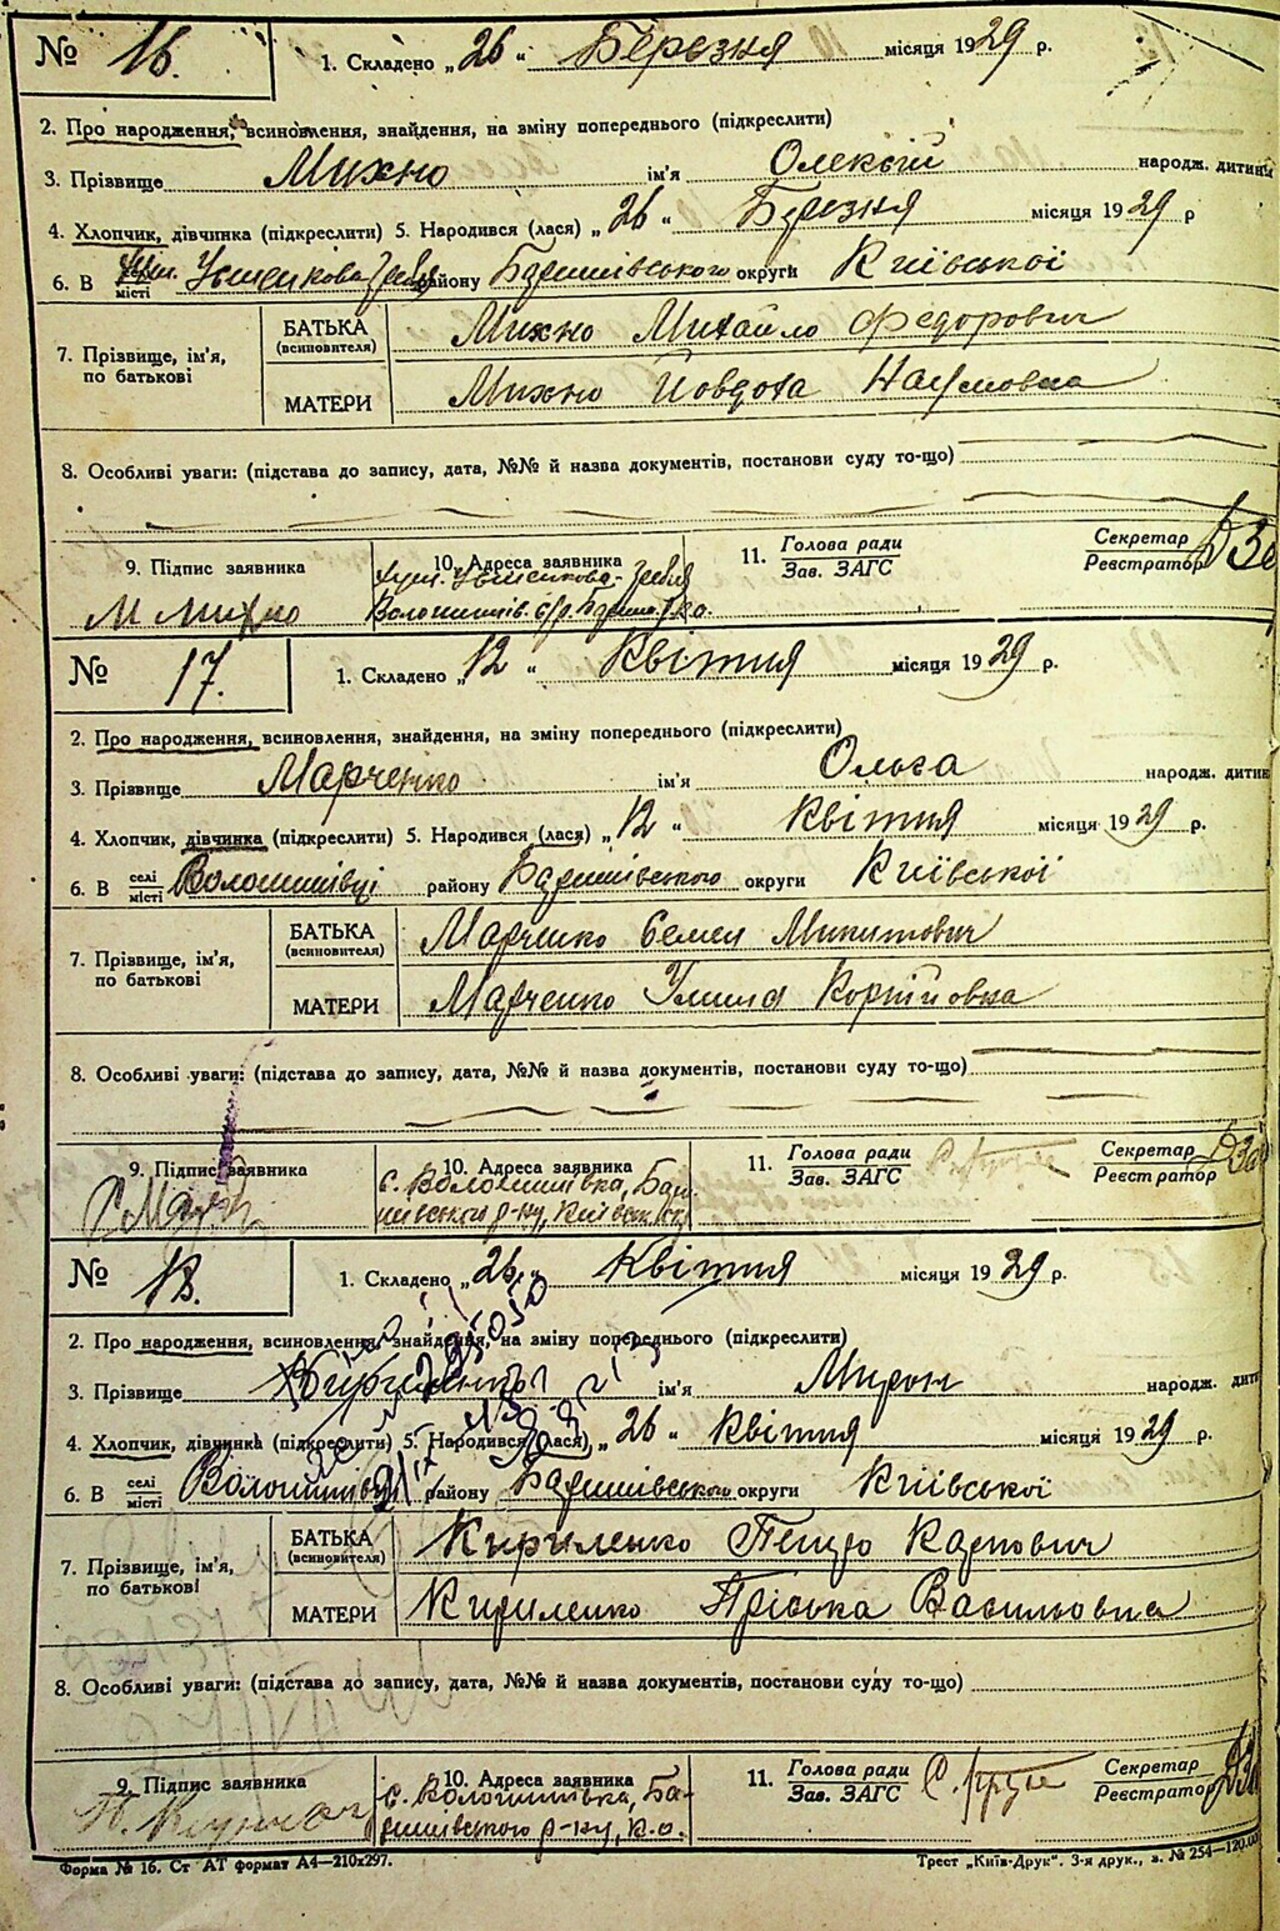 № 16. 1. Складено „26“ Березня місяця 1929 р.
2. Про народження, всиновлення, знайдення, на зміну попереднього (підкреслити)
3. Прізвище Михно ім'я Олексій народж. дитини
4. Хлопчик, дівчинка (підкреслити) 5. Народився (лася) „26“ Березня місяця 1929 р
6. В місті району Баришівського округи Київської
БАТЬКА (всиновителя) Михно Михайло Федорович
7. Прізвище, ім'я, по батькові
МАТЕРИ Михно Йовдоха Наумовна
8. Особливі уваги: (підстава до запису, дата, №№ й назва документів, постанови суду то-що)
9. Підпис заявника 10. Адреса заявника 11. Голова ради Зав. ЗАГС Секретар Реєстратор
М Михно
№ 17. 1. Складено „12“ Квітня місяця 1929 р.
2. Про народження, всиновлення, знайдення, на зміну попереднього (підкреслити)
3. Прізвище Марченко ім'я Ольга народж. дитин
4. Хлопчик, дівчинка (підкреслити) 5. Народився (лася) „12“ Квітня місяця 1929 р.
6. В селі місті Волошинівці району Баришівського округи Київської
БАТЬКА (всиновителя) Марченко Семен Микитович
7. Прізвище, ім'я, по батькові
МАТЕРИ Марченко Улина Корніївна
8. Особливі уваги: (підстава до запису, дата, №№ й назва документів, постанови суду то-що)
9. Підпис заявника 10. Адреса заявника 11. Голова ради Зав. ЗАГС Секретар Реєстратор
с. Волошинівка, Бари-
шівського р-ну, Київськ.
№ 18. 1. Складено „26“ Квітня місяця 1929 р.
2. Про народження, всиновлення, знайдення, на зміну попереднього (підкреслити)
3. Прізвище ім'я Мирон народж. дити
4. Хлопчик, дівчинка (підкреслити) 5. Народився (лася) „26“ Квітня місяця 1929 р.
6. В селі місті Волошинівці району Баришівського округи Київської
БАТЬКА (всиновителя) Кириленко Петро Карпович
7. Прізвище, ім'я, по батькові
МАТЕРИ Кириленко Пріська Васильовна
8. Особливі уваги: (підстава до запису, дата, №№ й назва документів, постанови суду то-що)
9. Підпис заявника 10. Адреса заявника 11. Голова ради Зав. ЗАГС Секретар Реєстратор
с. Волошинівка, Ба-
ришівського р-ну, К.о.
Форма № 16. Ст АТ формат А4—210x297. Трест „Київ-Друк“. 3-я друк., з. № 254—120.00